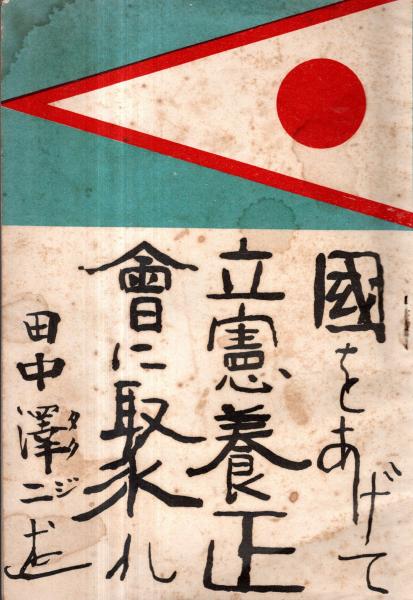 國をあげて
立憲養正
會に聚れ
田中澤二述
タクジ